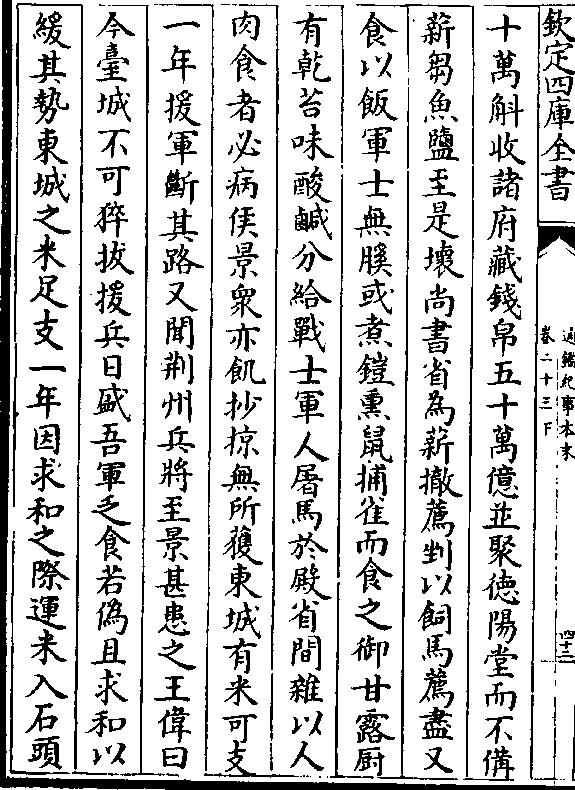 欽定四庫全書
通鑑紀事本末
卷二十三下
四十三
十萬斛收諸府藏錢帛五十萬億並聚德陽堂而不備
薪芻魚鹽至是壞尚書省為薪撤薦剉以飼馬薦盡又
食以飯軍士無膎或煮鎧熏鼠捕雀而食之御甘露厨
有乾苔味酸鹹分給戰士軍人屠馬於殿省間雜以人
肉食者必病侯景衆亦飢抄掠無所獲東城有米可支
一年援軍斷其路又聞荆州兵將至景甚患之王偉曰
今臺城不可猝拔援兵日盛吾軍乏食若偽且求和以
緩其勢東城之米足支一年因求和之際運米入石頭